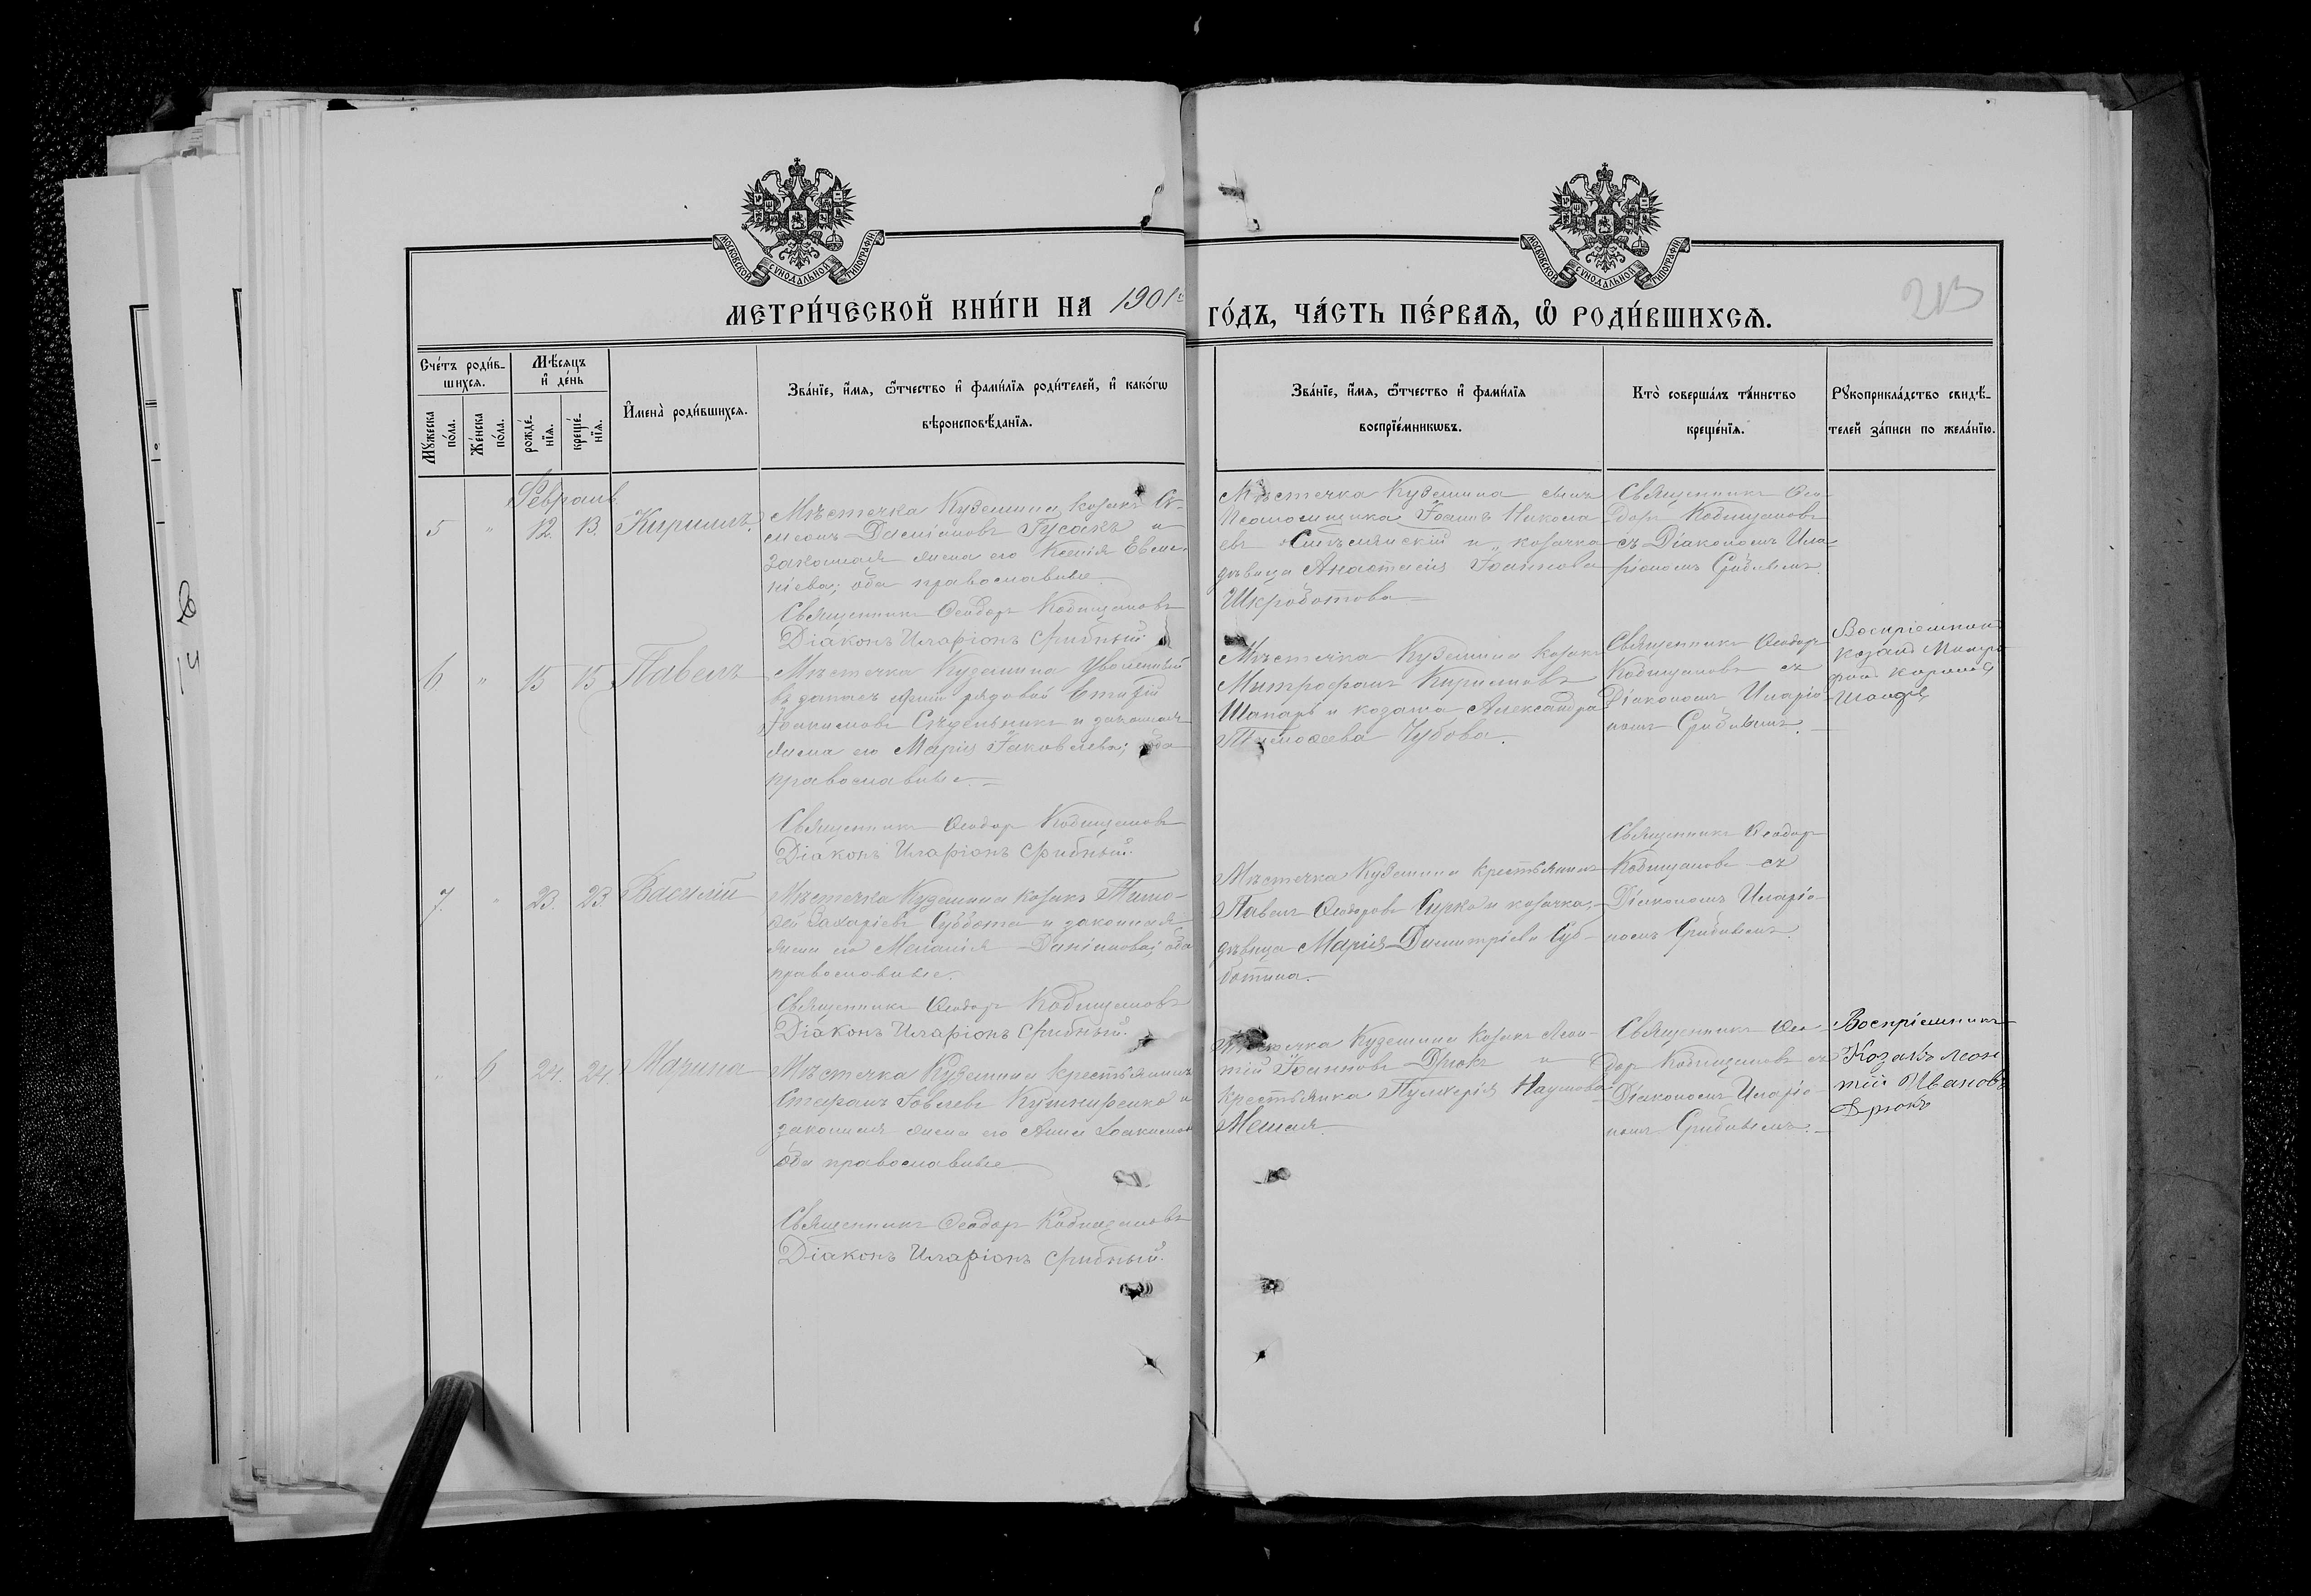 МОСКОВСКОЙ СѴНОДАЛЬНОЙ ТИПОГРАФІИ
МОСКОВСКОЙ СѴНОДАЛЬНОЙ ТИПОГРАФІИ
МЕТРИ́ЧЕСКОЙ КНИ́ГИ НА 1901 ГО́ДЪ, ЧА́СТЬ ПЕ́РВАѦ, Ѡ҆ РОДИ́ВШИХСѦ.
213
Сче́тъ роди́в-
шихсѧ.
Мꙋ́жеска по́ла.
Же́нска по́ла.
Мѣ́сѧцъ
и҆ де́нь
рожде́-
нїѧ.
креще́-
нїѧ.
И҆мена̀ роди́вшихсѧ.
Зва́нїе, и҆́мѧ, ѻ҆́тчество и҆ фами́лїѧ роди́телей, и҆ како́гѡ
вѣроисповѣ́данїѧ.
Зва́нїе, и҆́мѧ, ѻ҆́тчество и҆ фами́лїѧ
воспрїе́мникѡвъ.
Кто̀ соверша́лъ та́инство
креще́нїѧ.
Рꙋкоприкла́дство свидѣ́-
телей за́писи по жела́нїю.
Февраль
5 " 12. 13. Кириллъ.
Мѣстечка Куземина козакъ Си-
меонъ Даміановъ Гусакъ и
законная жена его Ксенія Евме-
ніева; оба православные.
Священникъ Ѳеодоръ Кобищановъ
Діаконъ Иларіонъ Срибный.
Мѣстечка Куземина сынъ
Псаломщика Іоаннъ Никола-
евъ и козачка
дѣвица Анастасія Іоаннова
Шкроботова
Священникъ Ѳео-
доръ Кобищановъ
съ Діакономъ Ила-
ріономъ Срибнымъ.
6 " 15 15 Павелъ
Мѣстечка Куземина уволенный
въ запасъ арміи рядовой
Іоакимовъ и законная
жена его Марія Іаковлева; оба
православные.
Священникъ Ѳеодоръ Кобищановъ
Діаконъ Иларіонъ Срибный.
Мѣстечка Куземина козакъ
Митрофанъ Кирилловъ
Шапарь и козачка Александра
Тимоѳеева Чубова.
Священникъ Ѳеодоръ
Кобищановъ съ
Діакономъ Иларіо-
номъ Срибнымъ.
Воспріемник
козакъ Митро
фанъ
7. " 23. 23. Василій
Мѣстечка Куземина козакъ Тимо-
ѳей Захаріевъ Суббота и законная
жена его Меланія Даніилова; оба
православные.
Священникъ Ѳеодоръ Кобищановъ
Діаконъ Иларіонъ Срибный.
Мѣстечка Куземина крестьянинъ
Павелъ Ѳеодоровъ Сирко и козачка,
дѣвица Марія Димитріева Суб-
ботина.
Священникъ Ѳеодоръ
Кобищановъ съ
Діакономъ Иларіо-
номъ Срибнымъ.
" 6 24. 24. Марина
Мѣстечка Куземина крестьянинъ
Стефанъ Іовлевъ Кушниренко и
законная жена его Анна Іоакимова
оба православные
Священникъ Ѳеодоръ Кобищановъ
Діаконъ Иларіонъ Срибный.
Мѣстечка Куземина козакъ Леон-
тій Іоанновъ Дрюкъ и
крестьянка Пульхерія Наумова
Священникъ Ѳео-
доръ Кобищановъ съ
Діакономъ Иларіо-
номъ Срибнымъ.
Воспріемникъ
Козакъ Леон
тій Ивановъ
Дрюкъ